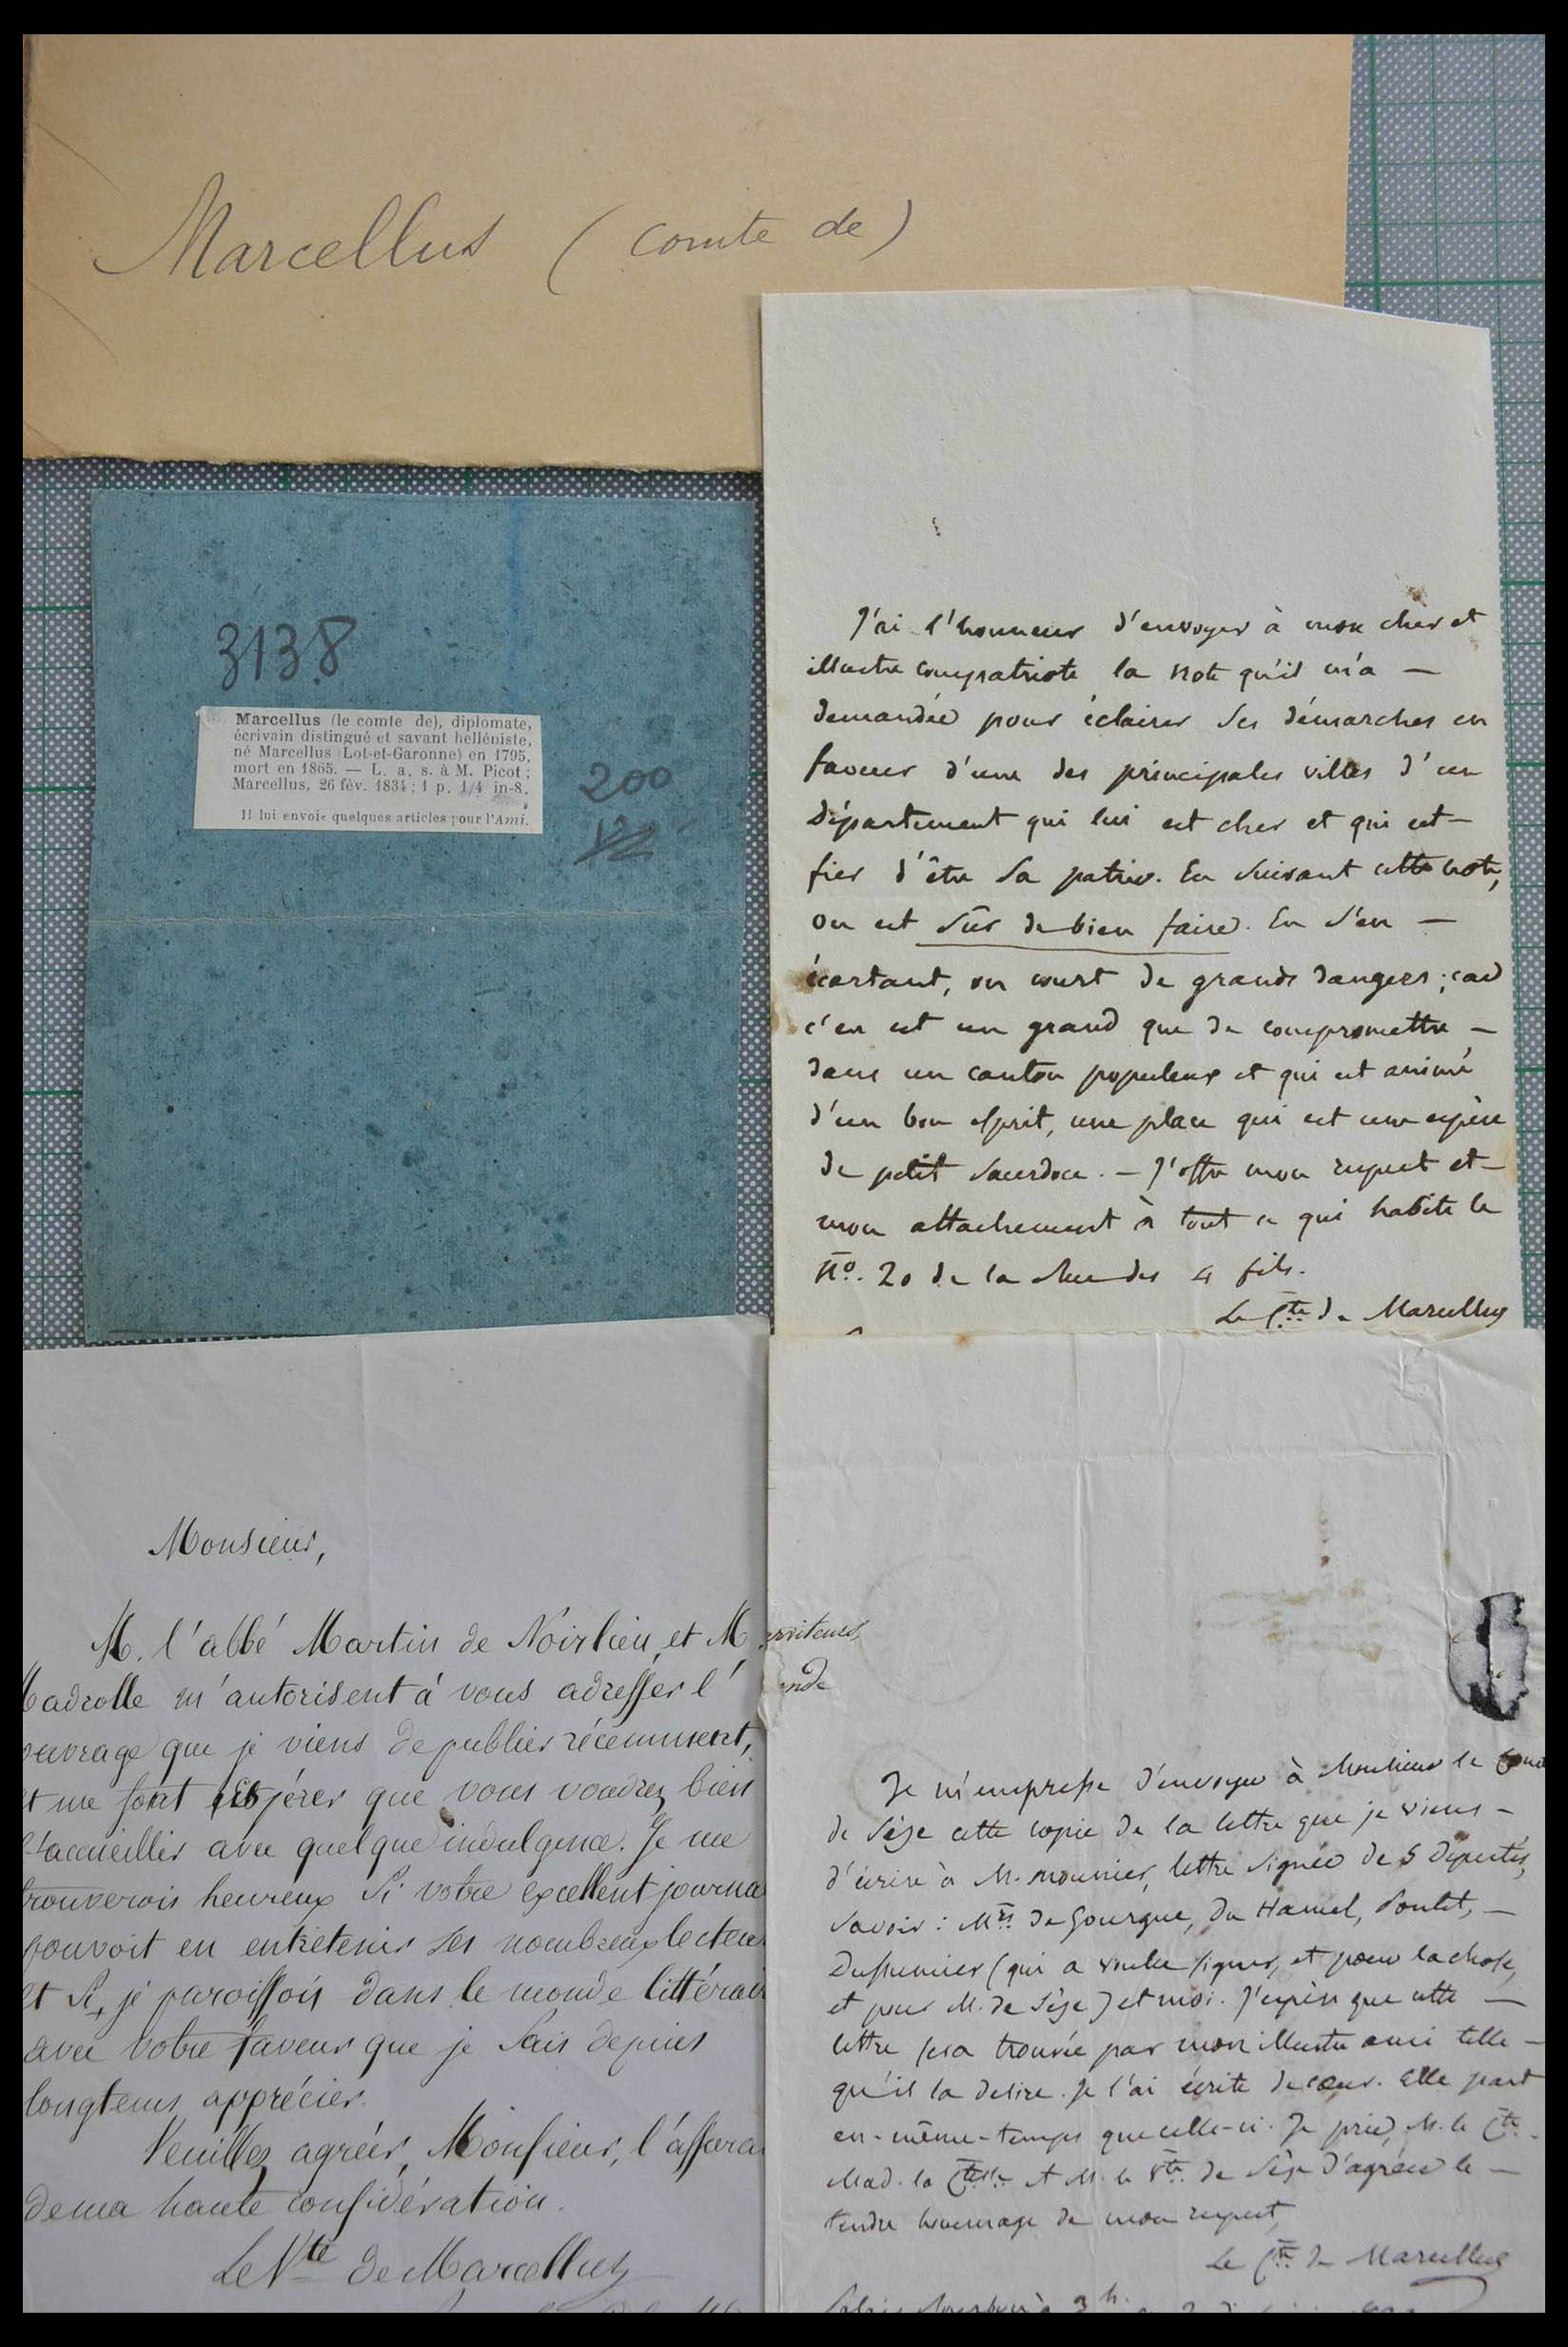 Marcellus (comte de)
3138
Marcellus (le comte de), diplomate,
écrivain distingué et savant helléniste,
né Marcellus (Lot-et-Garonne) en 1795,
mort en 1865. — L. a. s. à M. Picot;
Marcellus, 26 fév. 1834; 1 p. 1/4 in-8.
Il lui envoie quelques articles pour l'Ami.
200
12
J'ai l'honneur d'envoyer à mon cher et
illustre compatriote la note qu'il m'a —
demandée pour éclairer ses démarches en
faveur d'une des principales villes d'un
département qui lui est cher et qui est —
fier d'être sa patrie. En suivant cette note,
on est sûr de bien faire. En s'en —
écartant, on court de grands dangers; car
c'en est un grand que de compromettre —
dans un canton populeux et qui est animé
d'un bon esprit, une place qui est une espèce
de petit sacerdoce. — J'offre mon respect et —
mon attachement à tout ce qui habite le
N.º 20 de la rue des 4 fils.
Le C.te de Marcellus
Monsieur,
M. l'abbé Martin de Noirlieu, et M.
Madrolle m'autorisent à vous adresser l'
ouvrage que je viens de publier récemment,
et me font espérer que vous voudrez bien
l'accueillir avec quelque indulgence. Je me
trouverois heureux si votre excellent journa
pouvoit en entretenir ses nombreux lecteu
et si je paroissois dans le monde littérai
avec votre faveur que je sais depuis
longtems apprécier.
Veuillez agréer, Monsieur, l'assura
de ma haute considération.
Le Vte de Marcellus
erviteur,
ande
Je m'empresse d'envoyer à Monsieur le Com
de Sèze cette copie de la lettre que je viens —
d'écrire à M. Mounier, lettre signée de 5 députés,
savoir : M.rs de Gourgue, du Hamel, Pontet, —
Dussumier (qui a voulu signer, et pour la chose,
et pour M. de Sèze) et moi. J'espère que cette —
lettre sera trouvée par mon illustre ami telle —
qu'il la désire. Je l'ai écrite de cœur. Elle part
en-même-temps que celle-ci. Je prie, M. le C.te
Mad. la C.tesse et M. le V.te de Sèze d'agréer le —
tendre hommage de mon respect,
Le C.te de Marcellus
3 h.